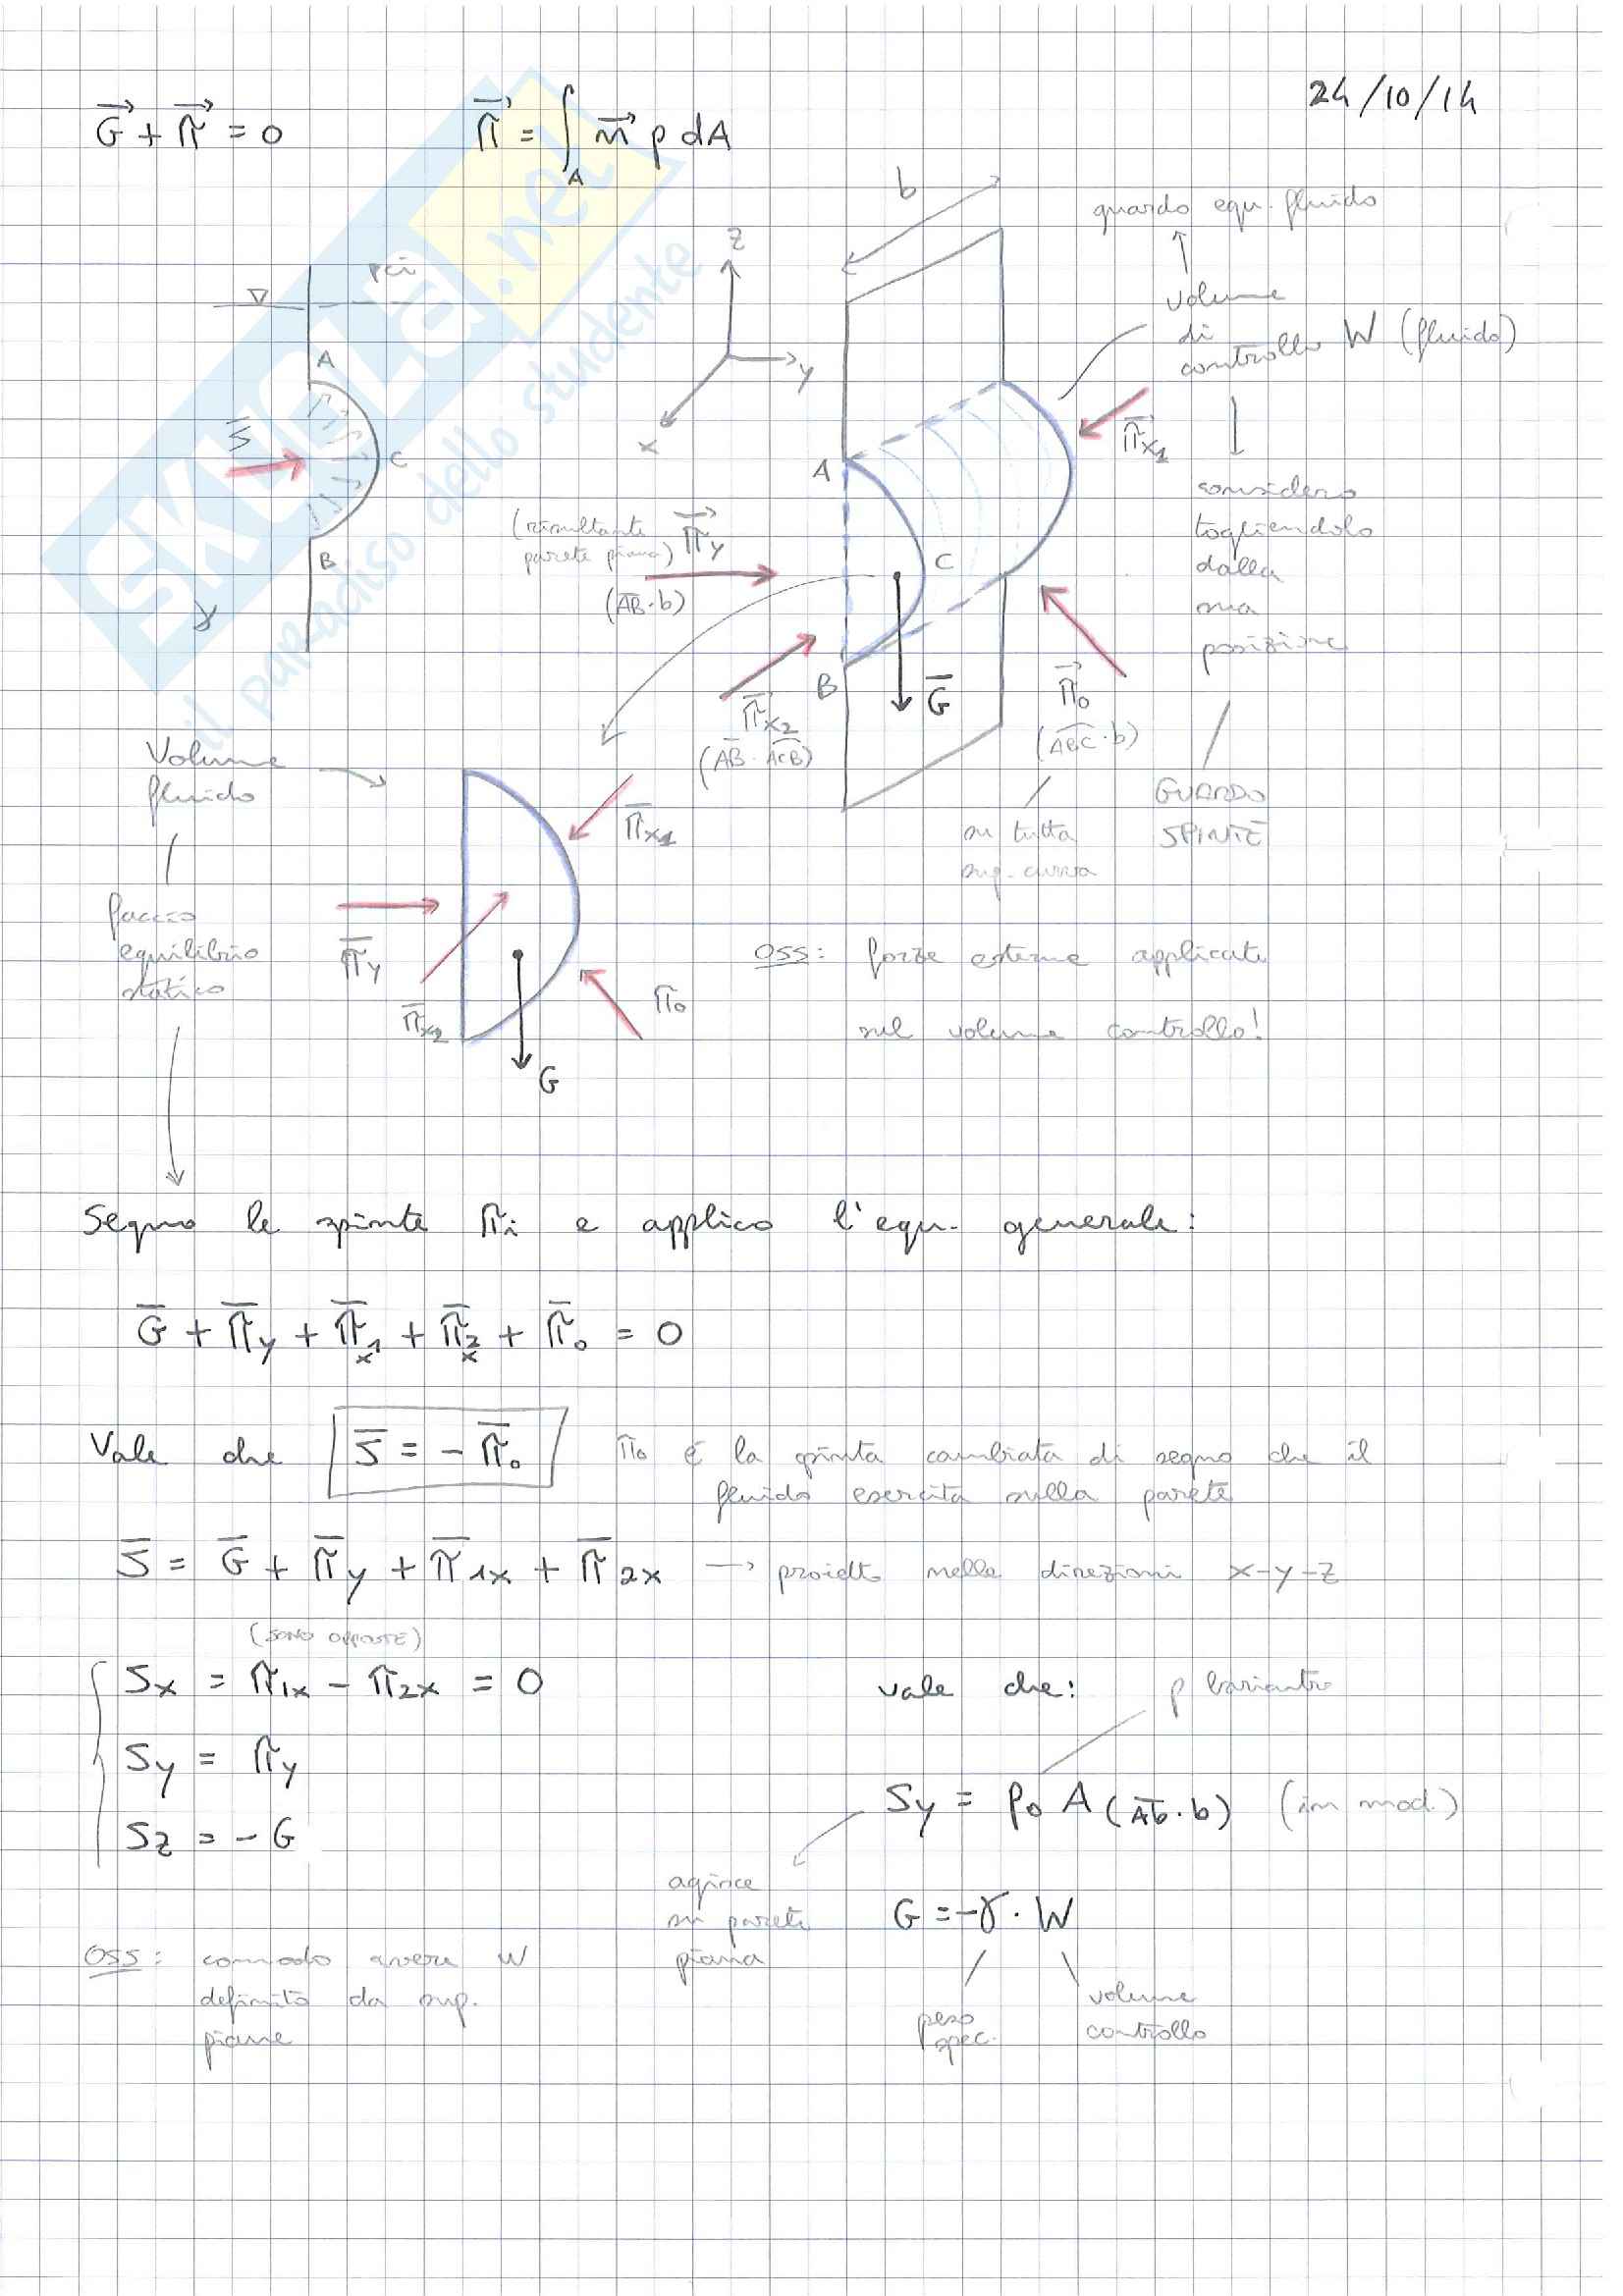 24/10/14
G + π = 0
π = ∫A n p dA
b
guardo equ. fluido
pci
z
y
x
volume
di
controllo W (fluido)
A
S
C
B
γ
A
πx1
considero
togliendolo
dalla
sua
posizione
(risultante
parete piana) πy
(AB·b)
C
B
πx2
(AB·ACB)
G
π0
(ABC·b)
su tutta
sup. curva
GUARDO
SPINTE
Volume
fluido
faccio
equilibrio
statico
πx1
πy
πx2
π0
G
OSS: forze esterne applicate
sul volume controllo!
Segno le spinte πi e applico l'equ. generale:
G + πy + πx1 + πx2 + π0 = 0
Vale che S = - π0
π0 è la spinta cambiata di segno che il
fluido esercita sulla parete
S = G + πy + π1x + π2x → proietto nelle direzioni x-y-z
(SONO OPPOSTE)
Sx = π1x - π2x = 0
Sy = πy
Sz = - G
vale che:
p baricentro
Sy = p0 A (AB·b) (in mod.)
agisce
su parete
piana
G = -γ · W
peso
spec.
volume
controllo
OSS: comodo avere W
definito da sup.
piane
SKUOLA.net
il paradiso dello studente